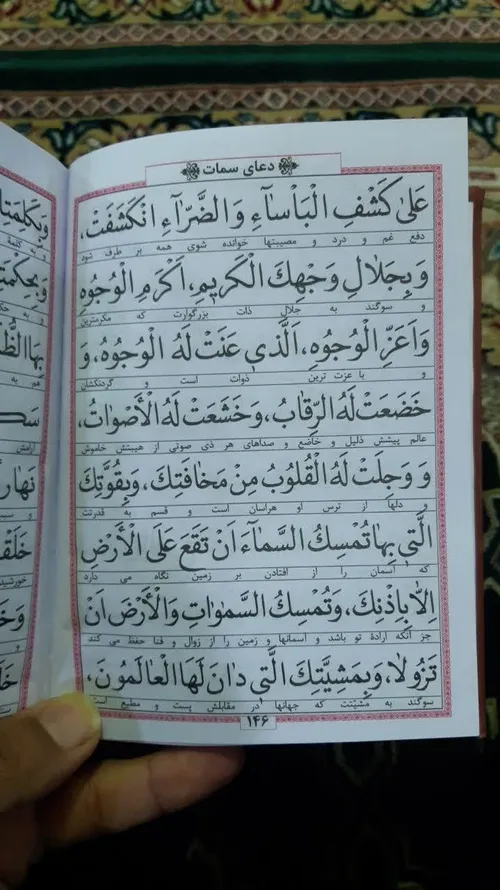 دعای سمات
عَلىٰ كَشْفِ الْبَأْسآءِ وَالضَّرّآءِ انْكَشَفَتْ،
دفع غم و درد و مصیبتها خوانده شوی همه بر طرف شود
وَبِجَلالِ وَجْهِكَ الْكَريمِ، اَكْرَمِ الْوُجُوهِ
و سوگند به جلال ذات بزرگوارت که مکرمترین
وَاَعَزِّ الْوُجُوهِ، اَلَّذي عَنَتْ لَهُ الْوُجُوهُ، وَ
و با عزت ترین ذوات است و گردنکشان
خَضَعَتْ لَهُ الرِّقابُ، وَخَشَعَتْ لَهُ الْاَصْواتُ،
عالم پیشش ذلیل و خاضع و صداهای هر ذی صوتی از هیبتش خاموش
وَ وَجِلَتْ لَهُ الْقُلُوبُ مِنْ مَخافَتِكَ، وَبِقُوَّتِكَ
و دلها از ترس او هراسان است و قسم به قدرتت
الَّتي بِها تُمْسِكُ السَّمآءَ اَنْ تَقَعَ عَلَى الْاَرْضِ
که آسمان را از افتادن بر زمین نگاه می دارد
اِلّا بِاِذْنِكَ، وَتُمْسِكُ السَّمٰواتِ وَالْاَرْضَ اَنْ
جز آنکه ارادهٔ تو باشد و آسمانها و زمین را از زوال و فنا حفظ می کند
تَزُولا، وَبِمَشِيَّتِكَ الَّتي دانَ لَهَا الْعالَمُونَ،
سوگند به مشیّتت که جهانها در مقابلش پست و مطیع است
۱۴۶